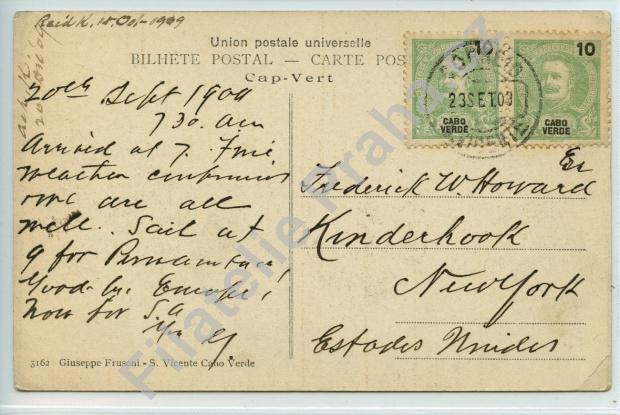 Rec'd K. 15. Oct - 1909
Union postale universelle
BILHETE POSTAL — CARTE POS
Cap-Vert
10
10
CABO VERDE
CABO VERDE
23SET.09
20th Sept 1909
7 30. am
Arrived at 7. Fine
weather continues
and we are all
well. Sail at
9 for Pernambuco
Good-by Europe!
Now for S.A
Frederick W. Howard
Kinderhook
New York
Estados Unidos
3162 Giuseppe Frusoni - S. Vicente Cabo Verde
Filatelie Praha.cz